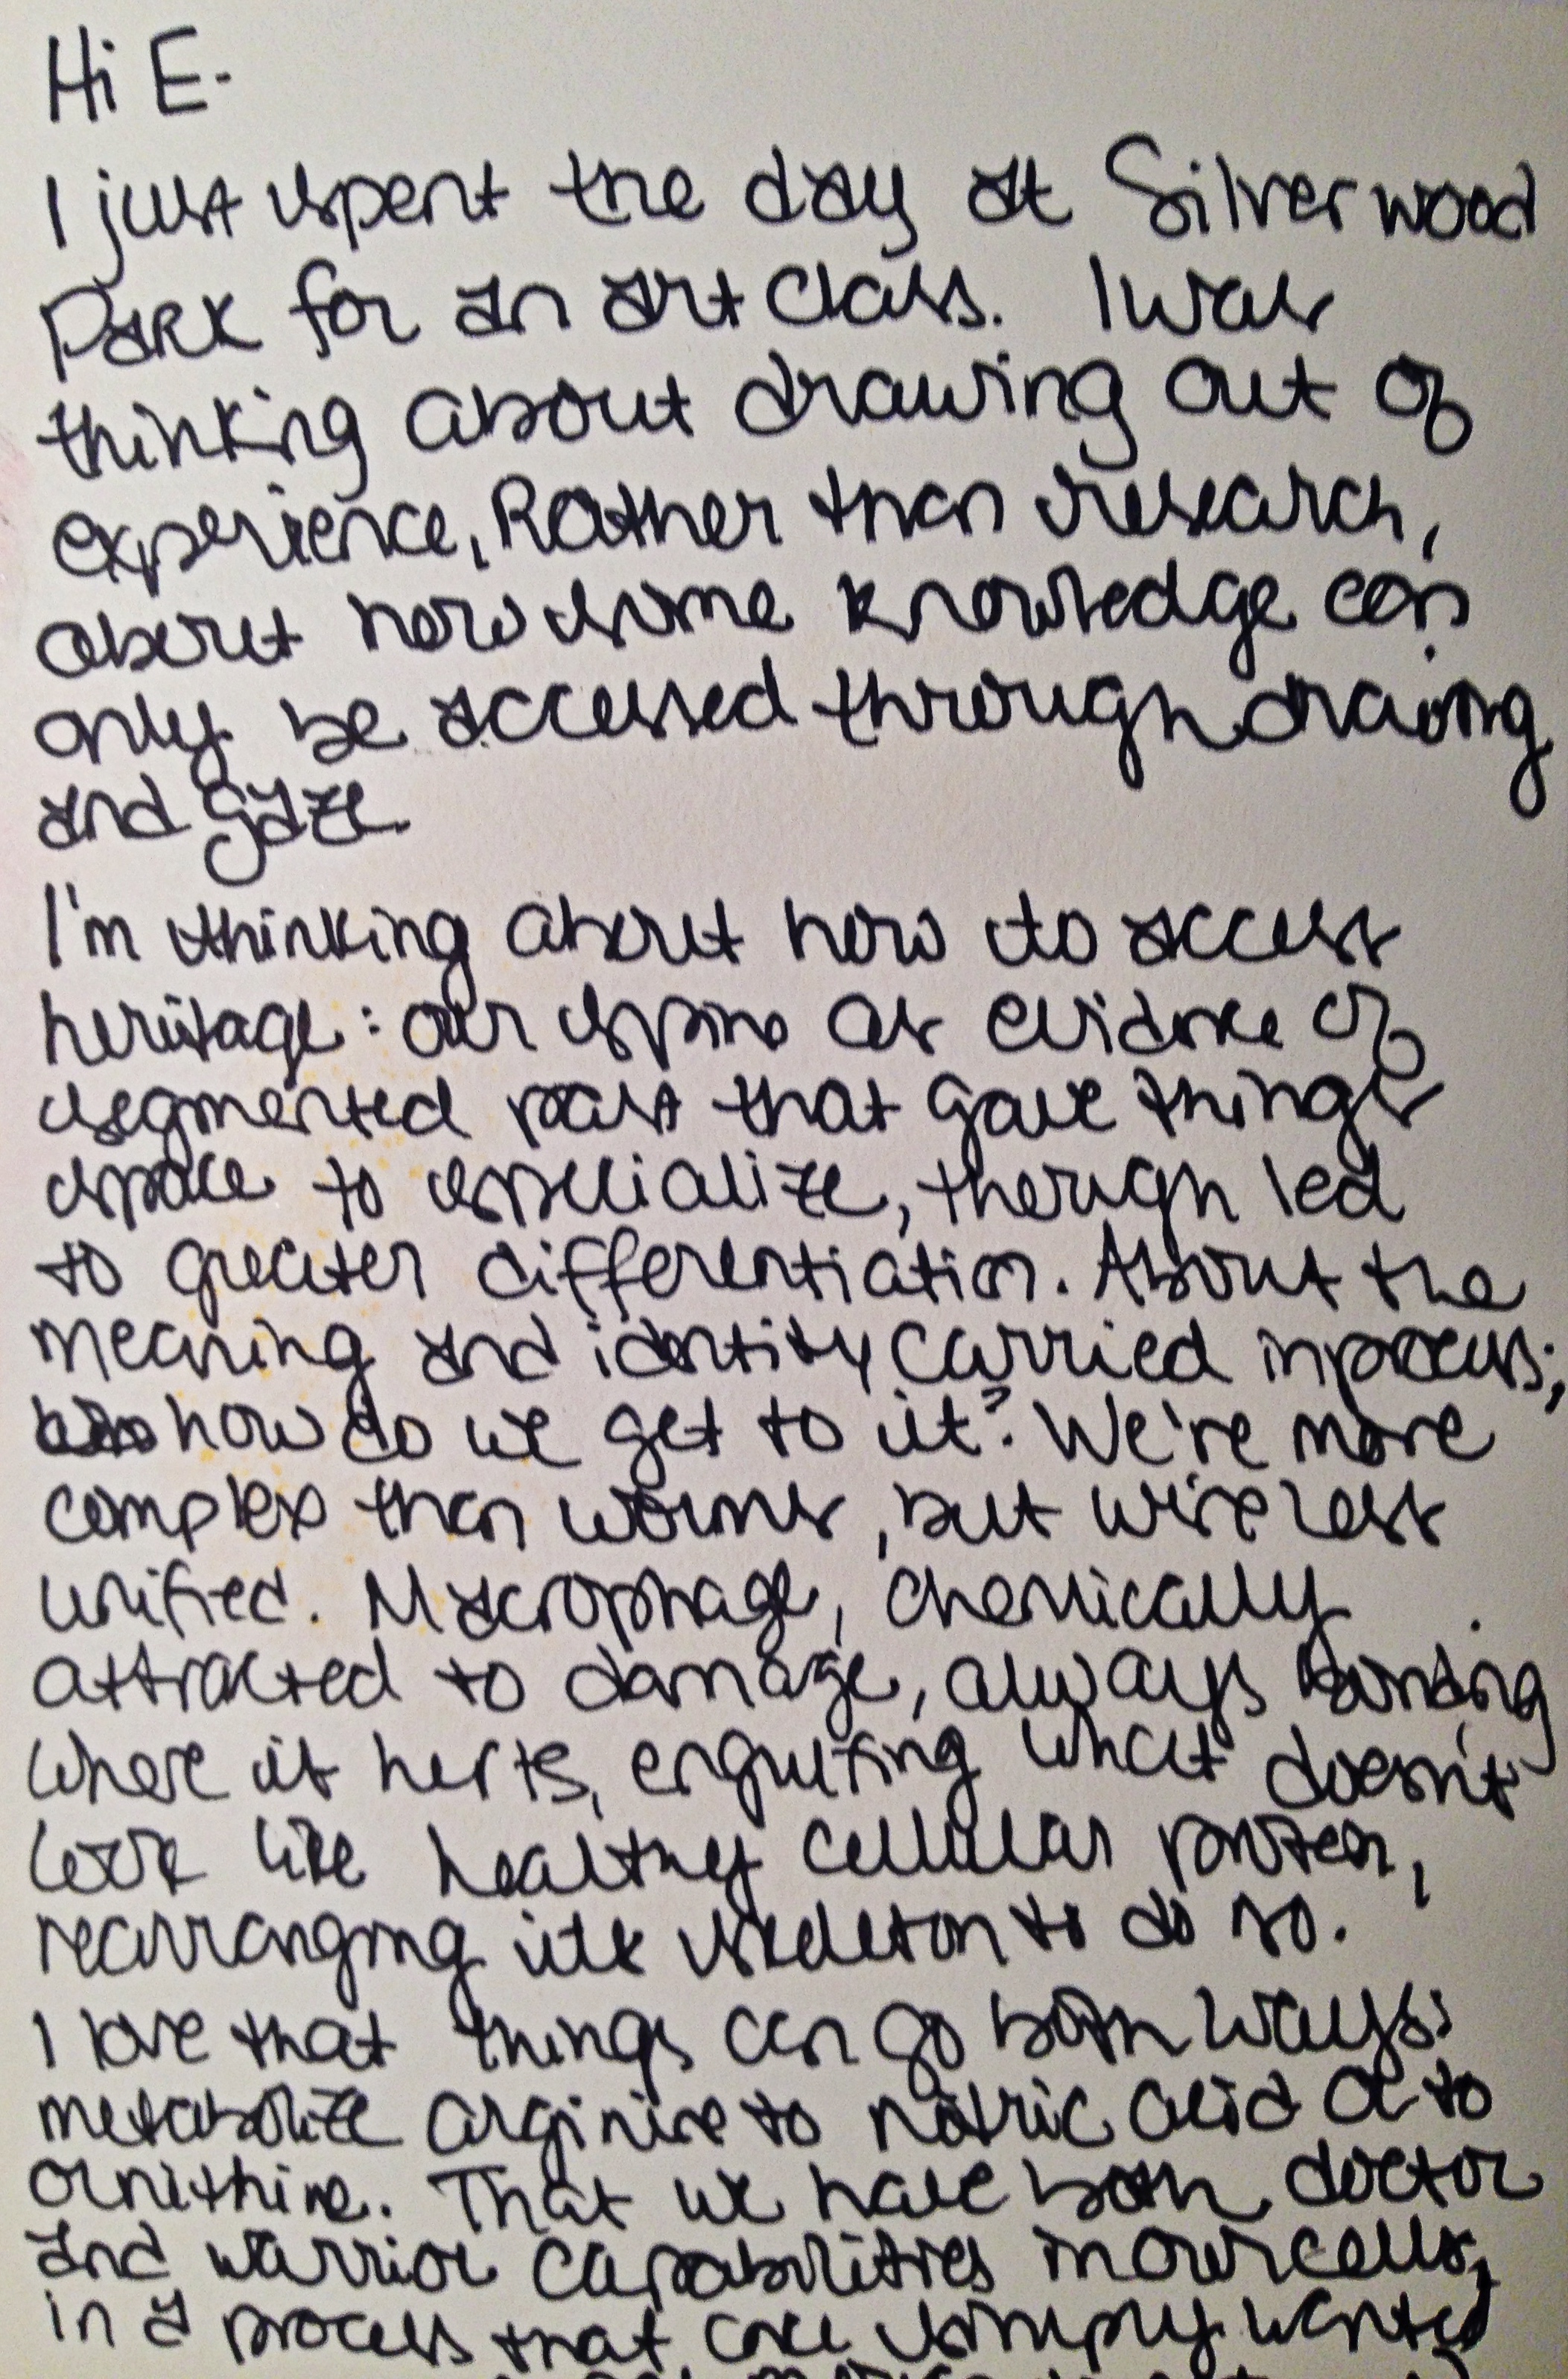 Hi E-
I just spent the day at Silverwood
Park for an art class. I was
thinking about drawing out of
experience, Rather than research,
about how some knowledge can
only be accessed through drawing
and gaze.
I'm thinking about how to access
heritage: our spine as evidence of
segmented past that gave things
space to specialize, though led
to greater differentiation. About the
meaning and identity carried in process;
how do we get to it? We're more
complex than worms, but wire less
unified. Macrophage, chemically
attracted to damage, always
where it herts, engulfing what doesn't
look like healthy cellular protein,
rearranging its skeleton to do so.
I love that things can go both ways:
metabolize arginine to nitric acid or to
ornithine. That we have both doctor
and warrior capabilities in our cells,
in a process that core simply wanted